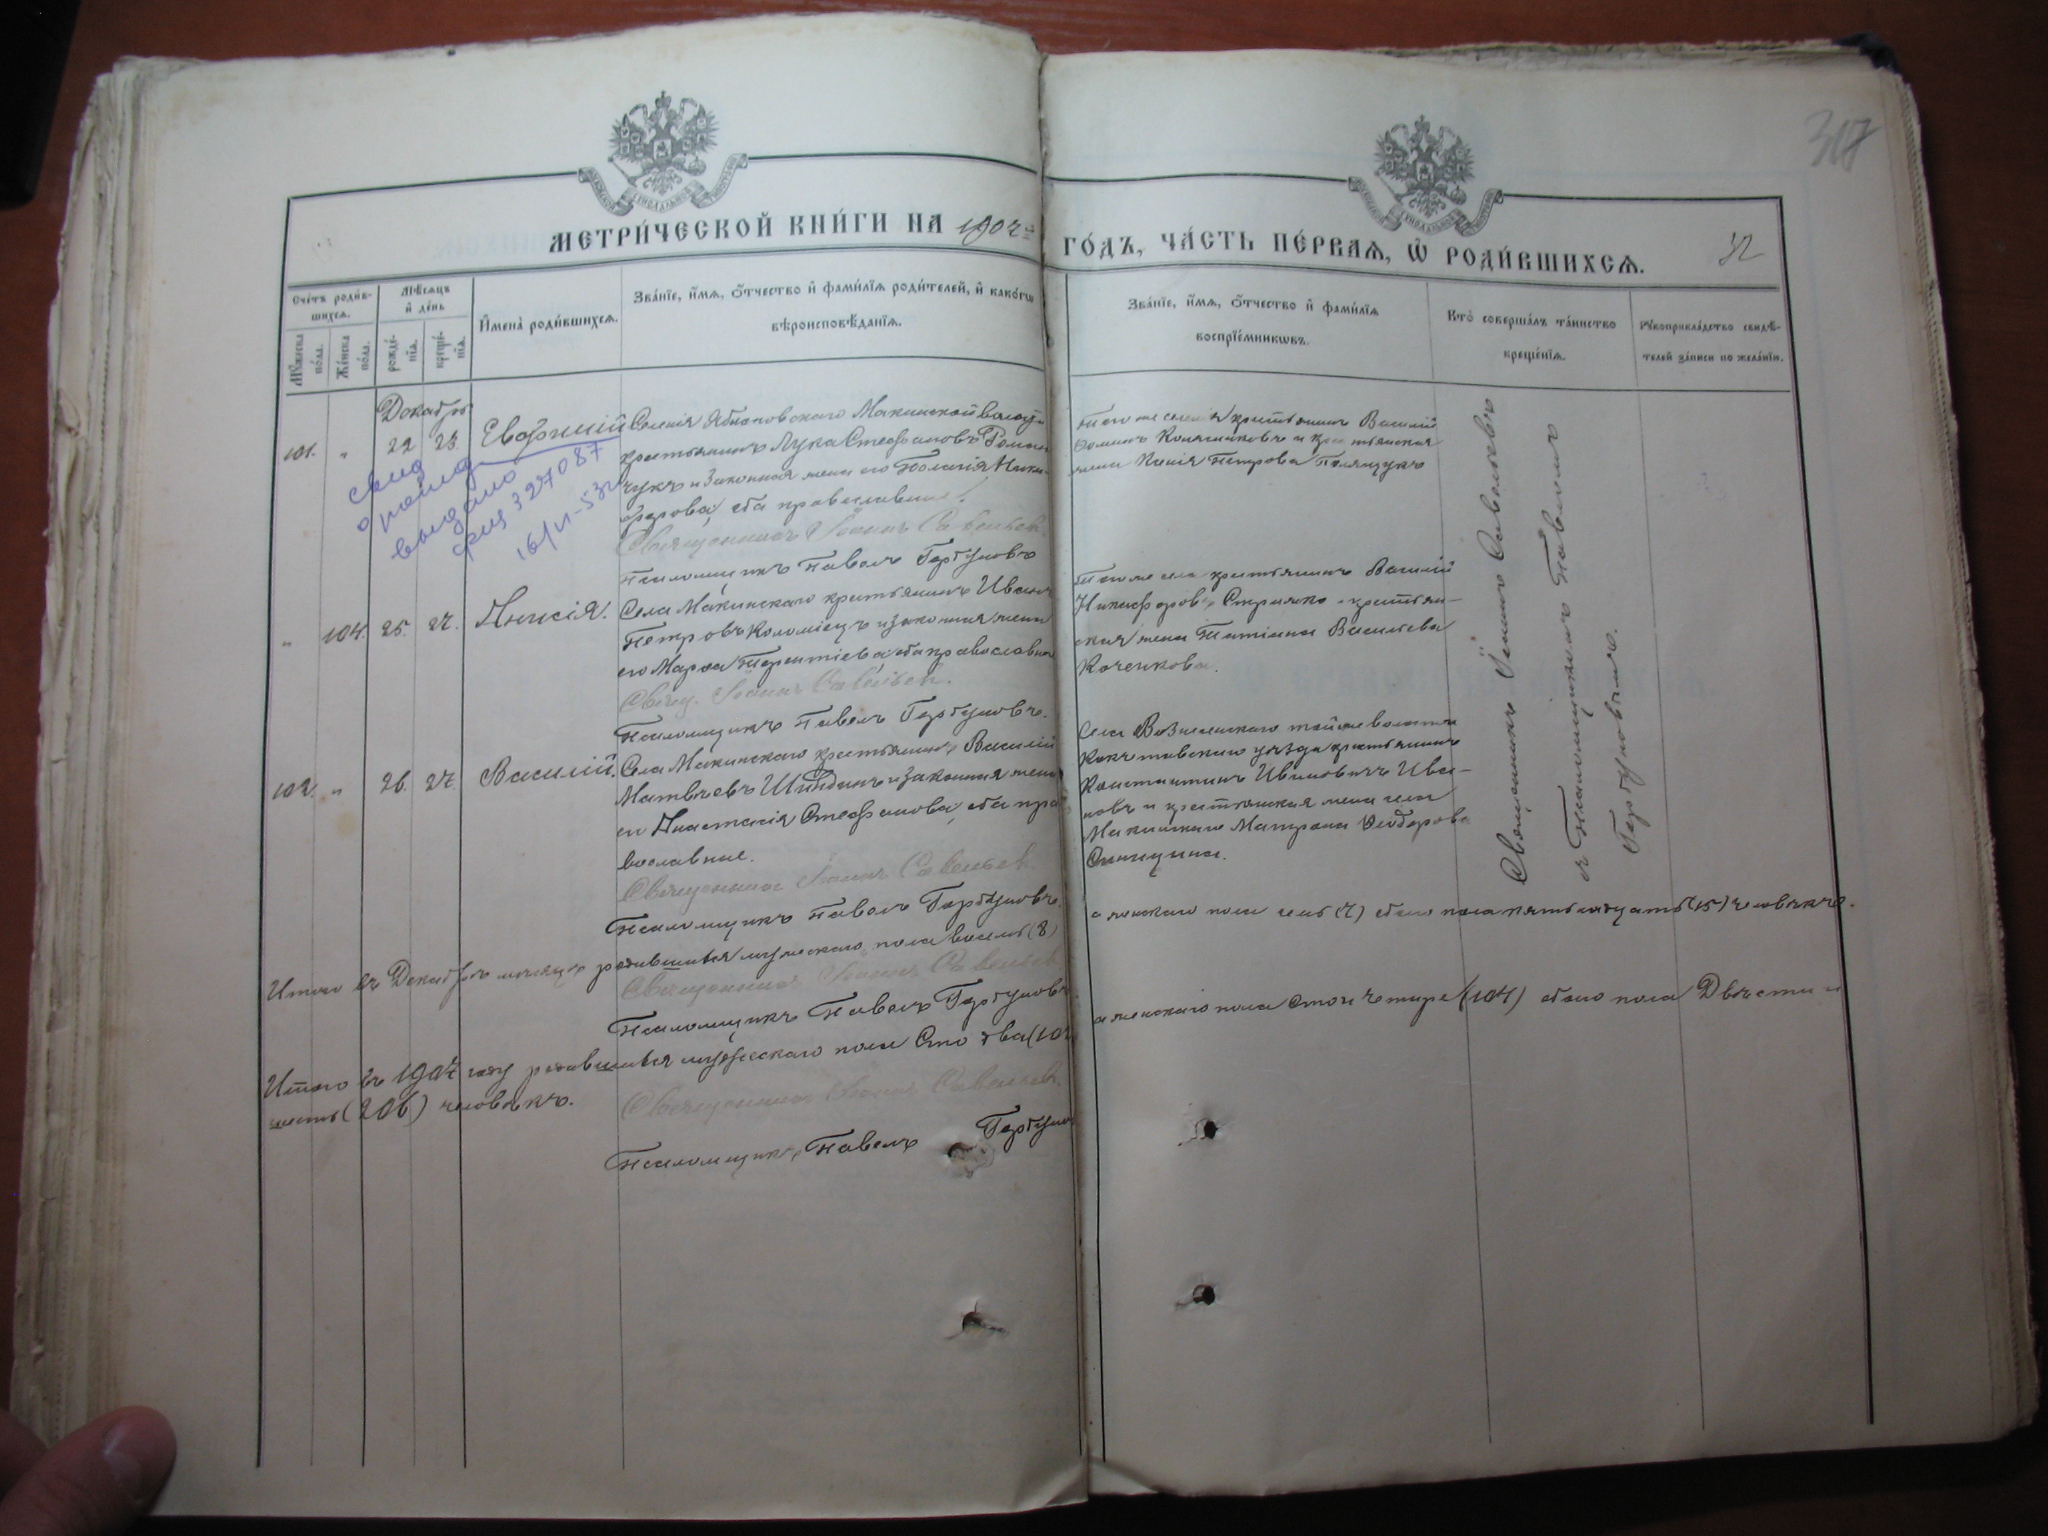 МЕТРИ́ЧЕСКОЙ КНИ́ГИ НА 1904 й
ГО́ДЪ, ЧА́СТЬ ПЕ́РВАѦ, Ѡ҆ РОДИ́ВШИХСѦ.
32
Сче́тъ роди́в-
шихсѧ.
Мꙋ́жеска по́ла.
Же́нска по́ла.
Мѣ́сяцъ
и҆ де́нь
рожде́-
нїѧ.
креще́-
нїѧ.
И҆мена̀ роди́вшихсѧ.
Зва́нїе, и҆́мѧ, ѻ҆́тчество и҆ фами́лїѧ роди́телей, и҆ како́гѡ
вѣроисповѣ́данїѧ.
Зва́нїе, и҆́мѧ, ѻ҆́тчество и҆ фами́лїѧ
воспрїе́мникѡвъ.
Кто̀ соверша́лъ та́инство
креще́нїѧ.
Рꙋкоприкла́дство свидѣ́-
телей за́писи по жела́нїю.
Декабрь
101. " 22 23. Евфимій
Селенія Яблоновскаго Макинской волости
крестьянинъ Лука Стефановъ Роман-
чукъ и законная жена его Пелагія Ники-
форова, оба православные.
Священникъ Іоаннъ Савельевъ
Псаломщикъ Павелъ Горбуновъ
выдано
327087
16/VI-53г
Того же селенія крестьянинъ Василій
и крестьянская
жена Ксенія Петрова Полящукъ
" 104. 25. 27. Анисія.
Села Макинскаго крестьянинъ Иванъ
Петровъ Коломіецъ и законная жена
его Марѳа Терентіева, оба православные
Свящ. Іоаннъ Савельевъ.
Псаломщикъ Павелъ Горбуновъ.
Того же села крестьянинъ Василій
Никифоровъ и крестьян-
ская жена Татіана Васильева
Коченкова.
102. " 26. 27. Василій.
Села Макинскаго крестьянинъ Василій
Матвѣевъ и законная жена
его Анастасія Стефанова, оба пра
вославные.
Священникъ Іоаннъ Савельевъ
Псаломщикъ Павелъ Горбуновъ.
Села Вознесенскаго той же волости
Кокчетавскаго уѣзда крестьянинъ
Константинъ Ивановичъ Ива-
новъ и крестьянская жена села
Макинскаго Матрона Ѳеодорова
Синицина.
Священникъ Іоаннъ Савельевъ
съ Псаломщикомъ Павломъ
Горбуновымъ.
Итого въ Декабрѣ мѣсяцѣ родившихся мужескаго пола восемь (8)
а женскаго пола семь (7) обоего пола пятьнадцать (15) человѣкъ.
Священникъ Іоаннъ Савельевъ
Псаломщикъ Павелъ Горбуновъ
Итого въ 1904 году родившихся мужескаго пола Сто два (102
а женскаго пола Сто и четыре (104) обоего пола Двѣсти и
шесть (206) человѣкъ.
Священникъ Іоаннъ Савельевъ
Псаломщикъ Павелъ Горбунов